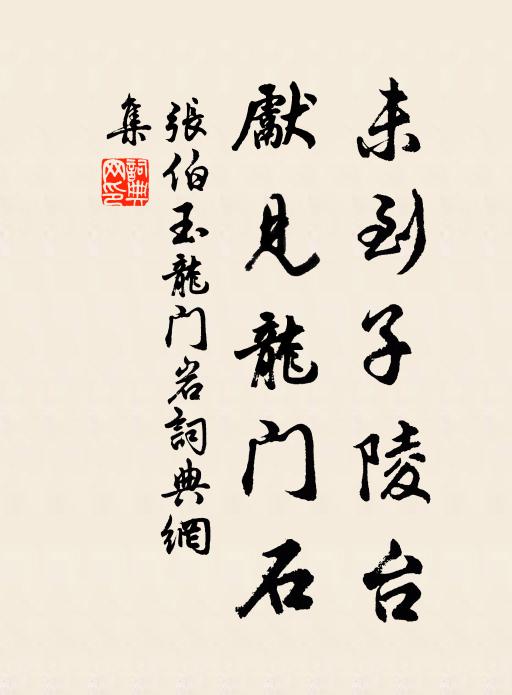 未到子陵台
獻見龍门石
張伯玉龍门岩詞典網
集
詞典
网印